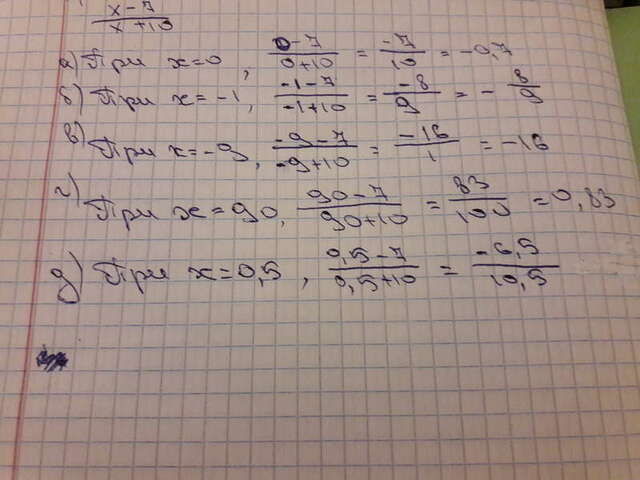 x-7/x+10
а) При x=0, 0-7/0+10 = -7/10 = -0,7
б) При x=-1, -1-7/-1+10 = -8/9 = - 8/9
в) При x=-9, -9-7/-9+10 = -16/1 = -16
г) При x=90, 90-7/90+10 = 83/100 = 0,83
д) При x=0,5, 0,5-7/0,5+10 = -6,5/10,5